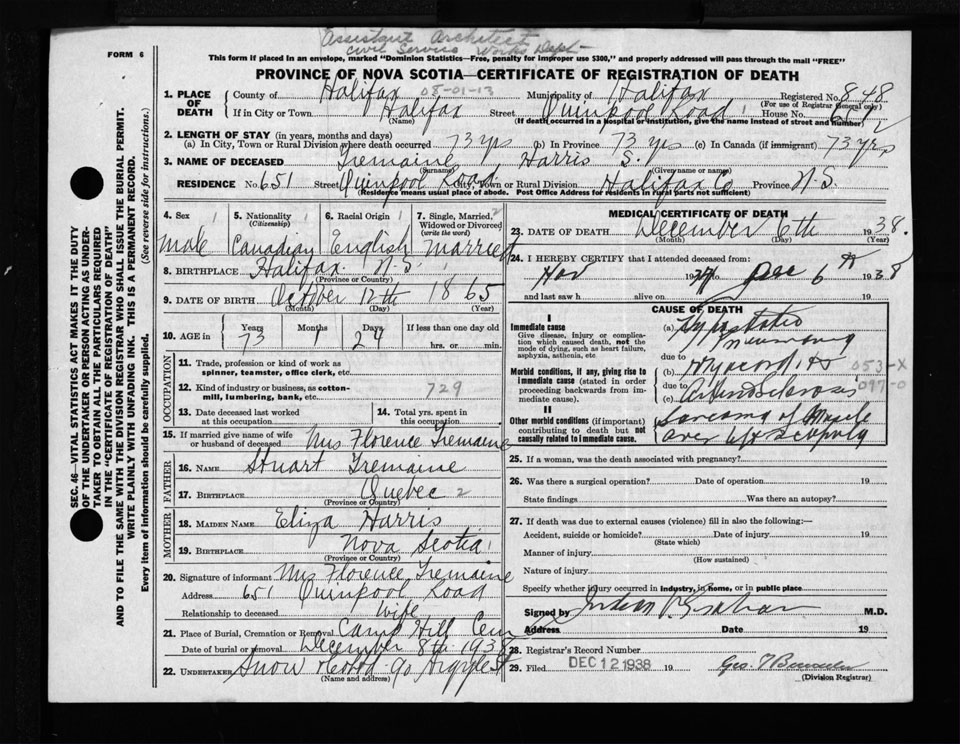 Assistant Architect
Civil Service Works Dept
FORM 6
This form if placed in an envelope, marked "Dominion Statistics—Free, penalty for improper use $300," and properly addressed will pass through the mail "FREE"
PROVINCE OF NOVA SCOTIA—CERTIFICATE OF REGISTRATION OF DEATH
1. PLACE OF DEATH
County of Halifax 08-01-13 Municipality of Halifax Registered No. 848
(For use of Registrar General only)
If in City or Town Halifax Street Quinpool Road House No. 651
(Name) (If death occurred in a hospital or institution, give the name instead of street and number)
2. LENGTH OF STAY (in years, months and days)
(a) In City, Town or Rural Division where death occurred 73 yrs (b) In Province 73 yrs (c) In Canada (if immigrant) 73 yrs
3. NAME OF DECEASED Tremaine Harris S.
(Surname) (Given name or names)
RESIDENCE No. 651 Street Quinpool Road City, Town or Rural Division Halifax Co Province N.S.
(Residence means usual place of abode. Post Office Address for residents in rural parts not sufficient)
4. Sex Male
5. Nationality (Citizenship) Canadian
6. Racial Origin English
7. Single, Married, Widowed or Divorced (write the word) Married
8. BIRTHPLACE Halifax N.S
(Province or Country)
9. DATE OF BIRTH October 12th 1865
(Month) (Day) (Year)
10. AGE in Years 73 Months 1 Days 24 If less than one day old
hrs. or min.
OCCUPATION
11. Trade, profession or kind of work as spinner, teamster, office clerk, etc.
12. Kind of industry or business, as cotton-mill, lumbering, bank, etc. 729
13. Date deceased last worked at this occupation
14. Total yrs. spent in this occupation
15. If married give name of wife or husband of deceased Mrs Florence Tremaine
FATHER
16. NAME Stuart Tremaine
17. BIRTHPLACE Quebec 2
(Province or Country)
MOTHER
18. MAIDEN NAME Eliza Harris
19. BIRTHPLACE Nova Scotia
(Province or Country)
20. Signature of informant Mrs Florence Tremaine
Address 651 Quinpool Road
Relationship to deceased Wife
21. Place of Burial, Cremation or Removal Camp Hill Cem
Date of burial or removal December 8th 1938
22. UNDERTAKER Snow & Co 90 Argyle St
(Name and address)
MEDICAL CERTIFICATE OF DEATH
23. DATE OF DEATH December 6th 1938.
(Month) (Day) (Year)
24. I HEREBY CERTIFY that I attended deceased from:
Nov 19 to Dec 6th 1938
and last saw h alive on 19
CAUSE OF DEATH
I
Immediate cause
Give disease, injury or complication which caused death, not the mode of dying, such as heart failure, asphyxia, asthenia, etc
(a) Hypostatic pneumonia
due to
Morbid conditions, if any, giving rise to immediate cause (stated in order proceeding backwards from immediate cause).
(b) Myocarditis 053-X
due to 097-0
(c) Arteriosclerosis
II
Other morbid conditions (if important) contributing to death but not causally related to immediate cause.
Sarcoma of Muscle
over left scapula
25. If a woman, was the death associated with pregnancy?
26. Was there a surgical operation? Date of operation 19
State findings Was there an autopsy?
27. If death was due to external causes (violence) fill in also the following:—
Accident, suicide or homicide? Date of injury 19
(State which)
Manner of injury
(How sustained)
Nature of injury
Specify whether injury occurred in industry, in home, or in public place
Signed by Graham M.D.
Address Date 19
28. Registrar's Record Number
29. Filed DEC 12 1938 19 Geo. T
(Division Registrar)
SEC. 46—VITAL STATISTICS ACT MAKES IT THE DUTY
OF THE UNDERTAKER OR PERSON ACTING AS UNDERTAKER TO OBTAIN ALL THE PARTICULARS REQUIRED
IN THE "CERTIFICATE OF REGISTRATION OF DEATH"
AND TO FILE THE SAME WITH THE DIVISION REGISTRAR WHO SHALL ISSUE THE BURIAL PERMIT.
WRITE PLAINLY WITH UNFADING INK. THIS IS A PERMANENT RECORD.
Every item of information should be carefully supplied. (See reverse side for instructions.)